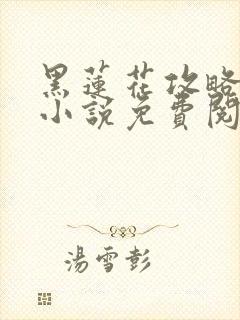 黑蓮花攻略
小說免費閱
湯雪彭